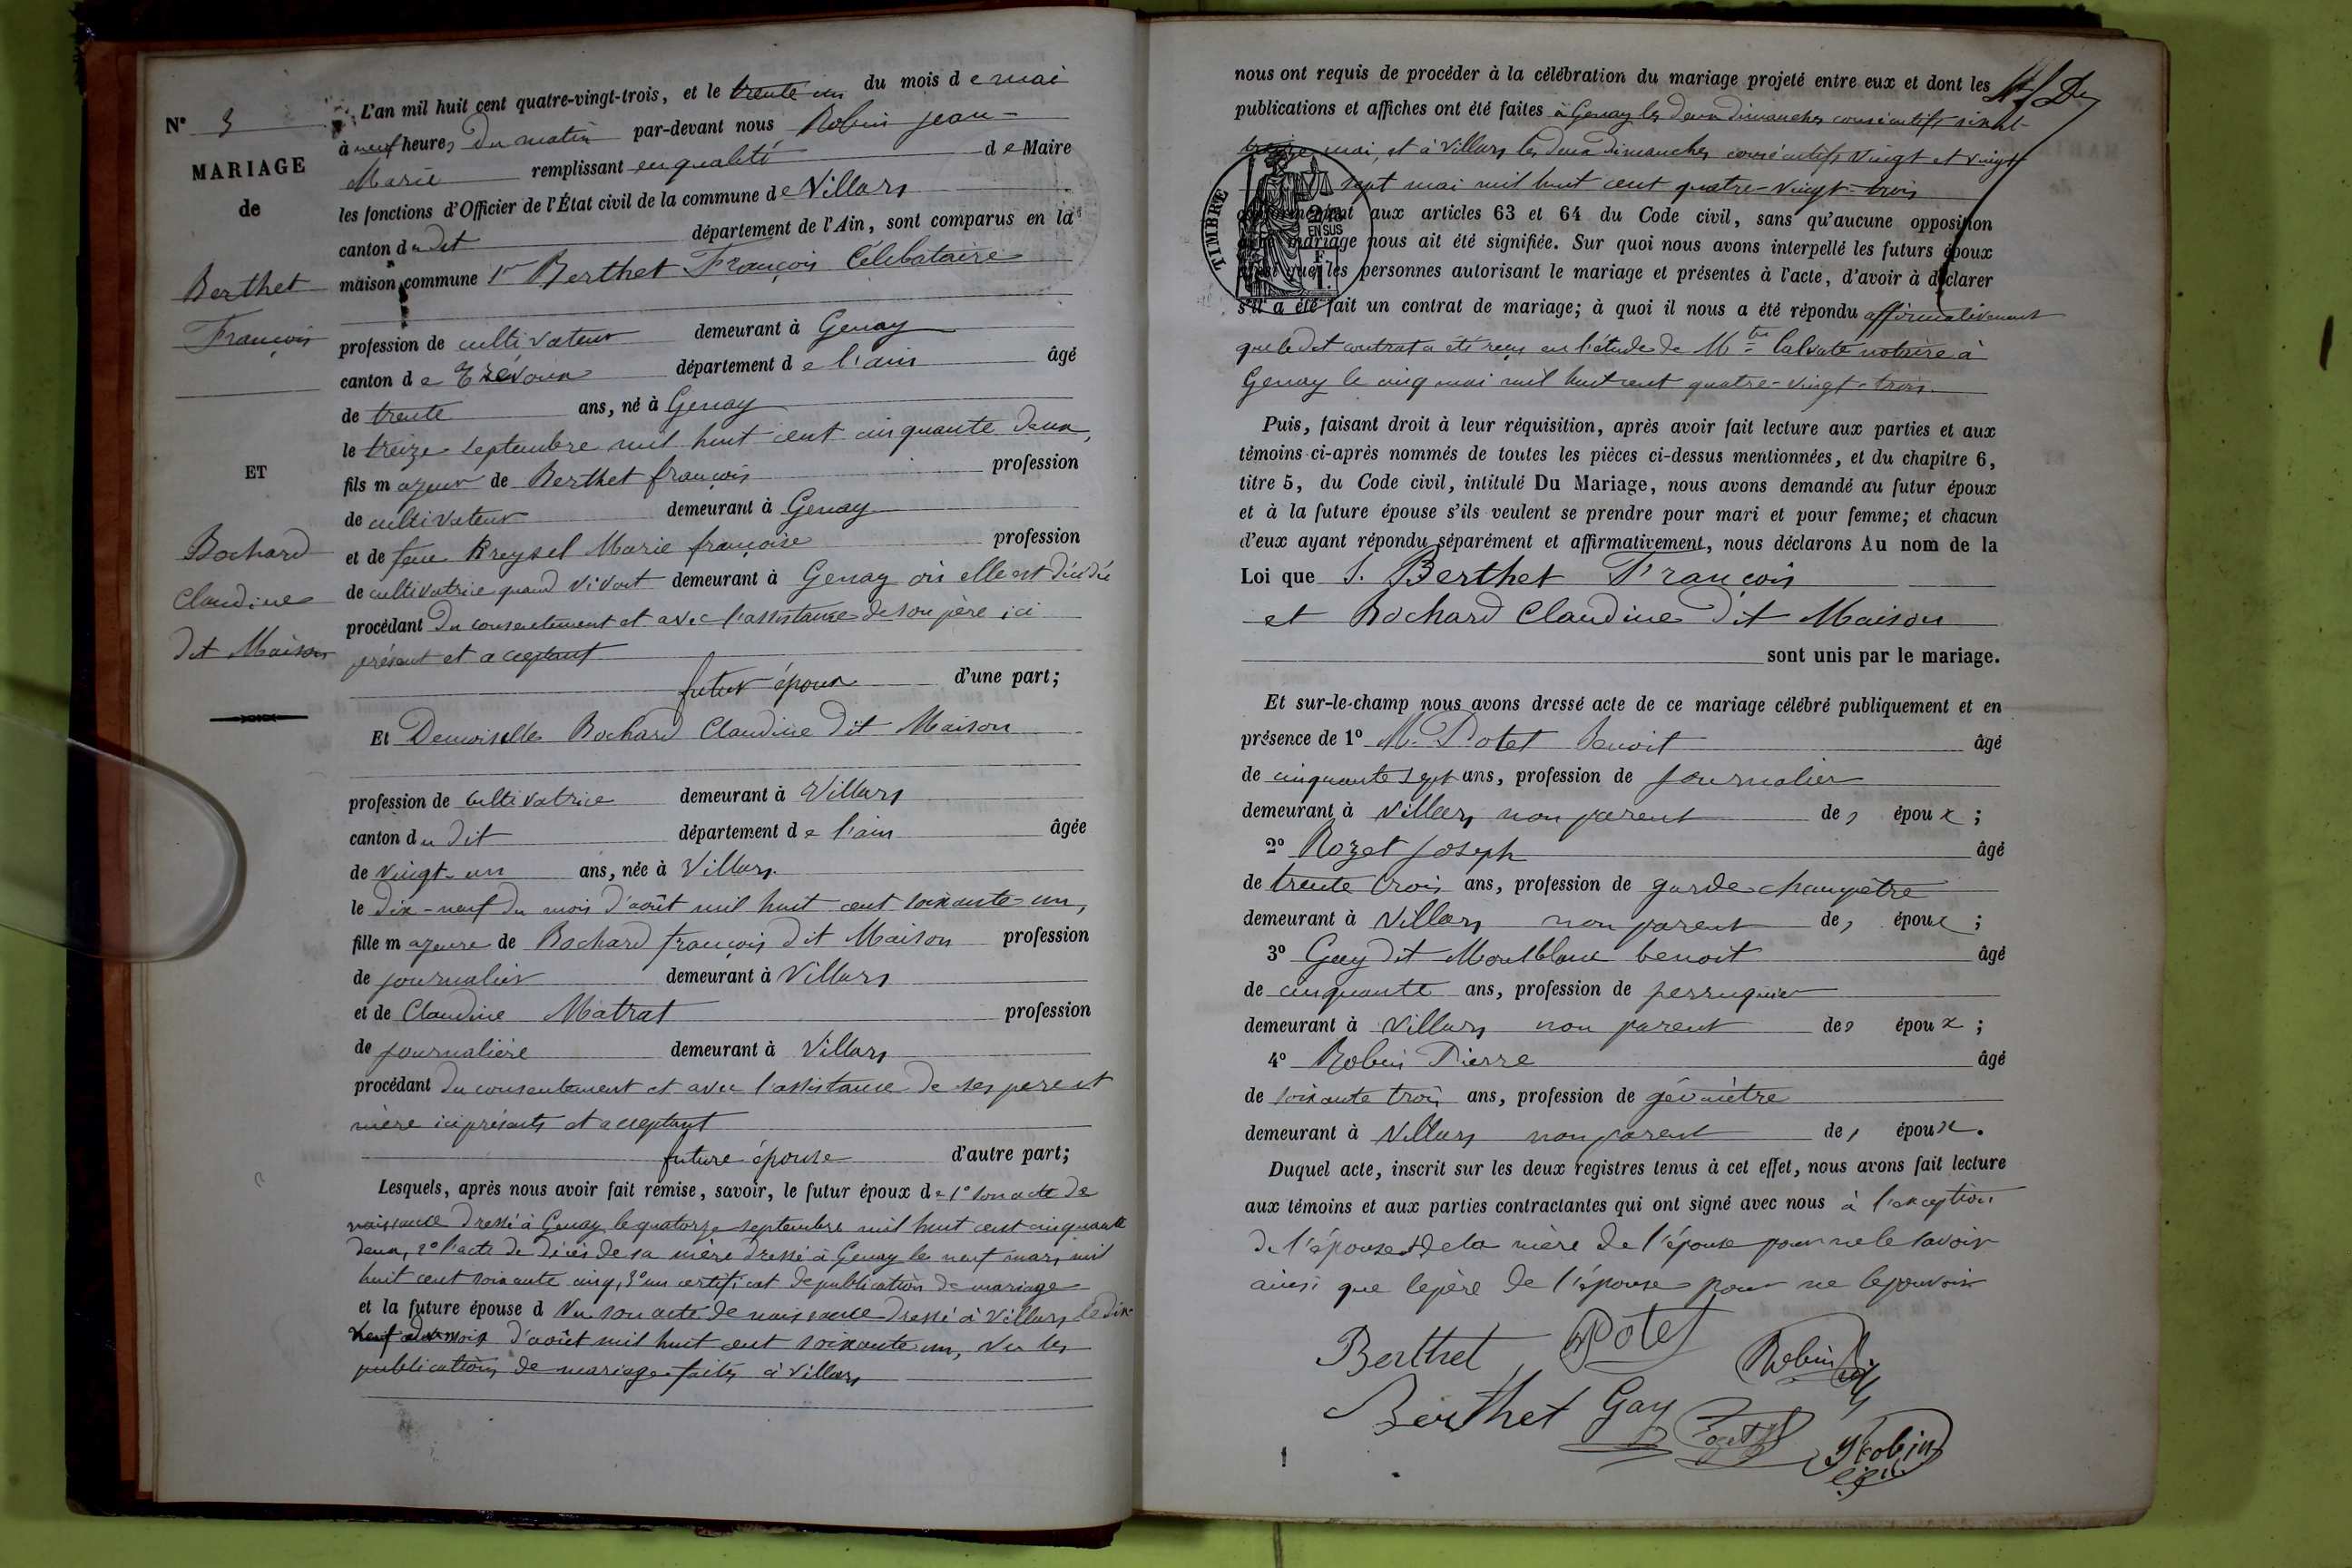 N° 3
MARIAGE
de
Berthet
François
ET
Bochard
Claudine
dit Maison
L'an mil huit cent quatre-vingt-trois, et le trente un du mois de mai
à neuf heures du matin par-devant nous Robin Jean-
Marie remplissant en qualité de Maire
les fonctions d'Officier de l'État civil de la commune de Villars
canton du dit département de l'Ain, sont comparus en la
maison commune Berthet François Célibataire
profession de cultivateur demeurant à Genay
canton de Trévoux département de l'ain âgé
de trente ans, né à Genay
le treize septembre mil huit cent cinquante deux,
fils majeur de Berthet françois profession
de cultivateur demeurant à Genay
et de feue Breysel Marie françoise profession
de cultivatrice quand vivait demeurant à Genay où elle est décédée
procédant du consentement et avec l'assistance de son père ici
présent et acceptant
futur époux d'une part;
Et Demoiselle Bochard Claudine dit Maison
profession de cultivatrice demeurant à Villars
canton du dit département de l'ain âgée
de vingt-un ans, née à Villars
le dix-neuf du mois d'août mil huit cent soixante-un,
fille majeure de Bochard françois dit Maison profession
de journalier demeurant à Villars
et de Claudine Matrat profession
de journalière demeurant à Villars
procédant du consentement et avec l'assistance de ses père et
mère ici présents et acceptant
future épouse d'autre part;
Lesquels, après nous avoir fait remise, savoir, le futur époux de 1° son acte de
naissance dressé à Genay le quatorze septembre mil huit cent cinquante
deux, 2° l'acte de décès de sa mère dressé à Genay le neuf mars mil
huit cent soixante cinq, 3° un certificat de publication de mariage
et la future épouse d Vu son acte de naissance dressé à Villars le dix
neuf du mois d'août mil huit cent soixante un, vu les
publications de mariage faites à Villars
nous ont requis de procéder à la célébration du mariage projeté entre eux et dont les
publications et affiches ont été faites à Genay les deux dimanches consécutifs six et
treize mai, et à Villars les deux dimanches consécutifs vingt et vingt
sept mai mil huit cent quatre-vingt-trois
conformément aux articles 63 et 64 du Code civil, sans qu'aucune opposition
mariage nous ait été signifiée. Sur quoi nous avons interpellé les futurs époux
que les personnes autorisant le mariage et présentes à l'acte, d'avoir à déclarer
s'il a été fait un contrat de mariage; à quoi il nous a été répondu affirmativement
TIMBRE
EN SUS
que le dit contrat a été reçu en l'étude de Mtre notaire à
Genay le cinq mai mil huit cent quatre-vingt-trois.
Puis, faisant droit à leur réquisition, après avoir fait lecture aux parties et aux
témoins ci-après nommés de toutes les pièces ci-dessus mentionnées, et du chapitre 6,
titre 5, du Code civil, intitulé Du Mariage, nous avons demandé au futur époux
et à la future épouse s'ils veulent se prendre pour mari et pour femme; et chacun
d'eux ayant répondu séparément et affirmativement, nous déclarons Au nom de la
Loi que S. Berthet François
et Bochard Claudine dit Maison
sont unis par le mariage.
Et sur-le-champ nous avons dressé acte de ce mariage célébré publiquement et en
présence de 1° M. Potet Benoit âgé
de cinquante sept ans, profession de journalier
demeurant à Villars non parent des époux;
2° Rozet Joseph âgé
de trente trois ans, profession de garde champêtre
demeurant à Villars non parent des époux;
3° Gay dit Montblanc benoit âgé
de cinquante ans, profession de perruquier
demeurant à Villars non parent des époux;
4° Robin Pierre âgé
de soixante trois ans, profession de géomètre
demeurant à Villars non parent des époux.
Duquel acte, inscrit sur les deux registres tenus à cet effet, nous avons fait lecture
aux témoins et aux parties contractantes qui ont signé avec nous à l'exception
de l'épouse et de la mère de l'épouse pour ne le savoir
ainsi que le père de l'épouse pour ne le pouvoir
Berthet Potet Robin
Berthet Gay Rozet Robin